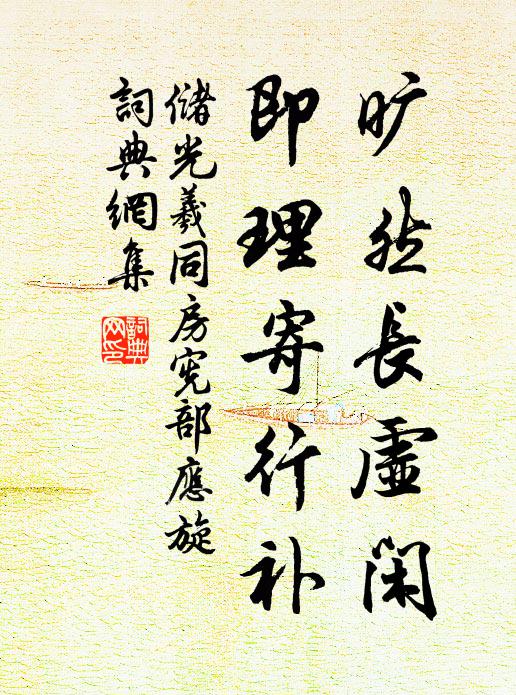 旷然長虛闲
即理寄行补
儲光羲同房宪部應旋
詞典網集
詞典网印